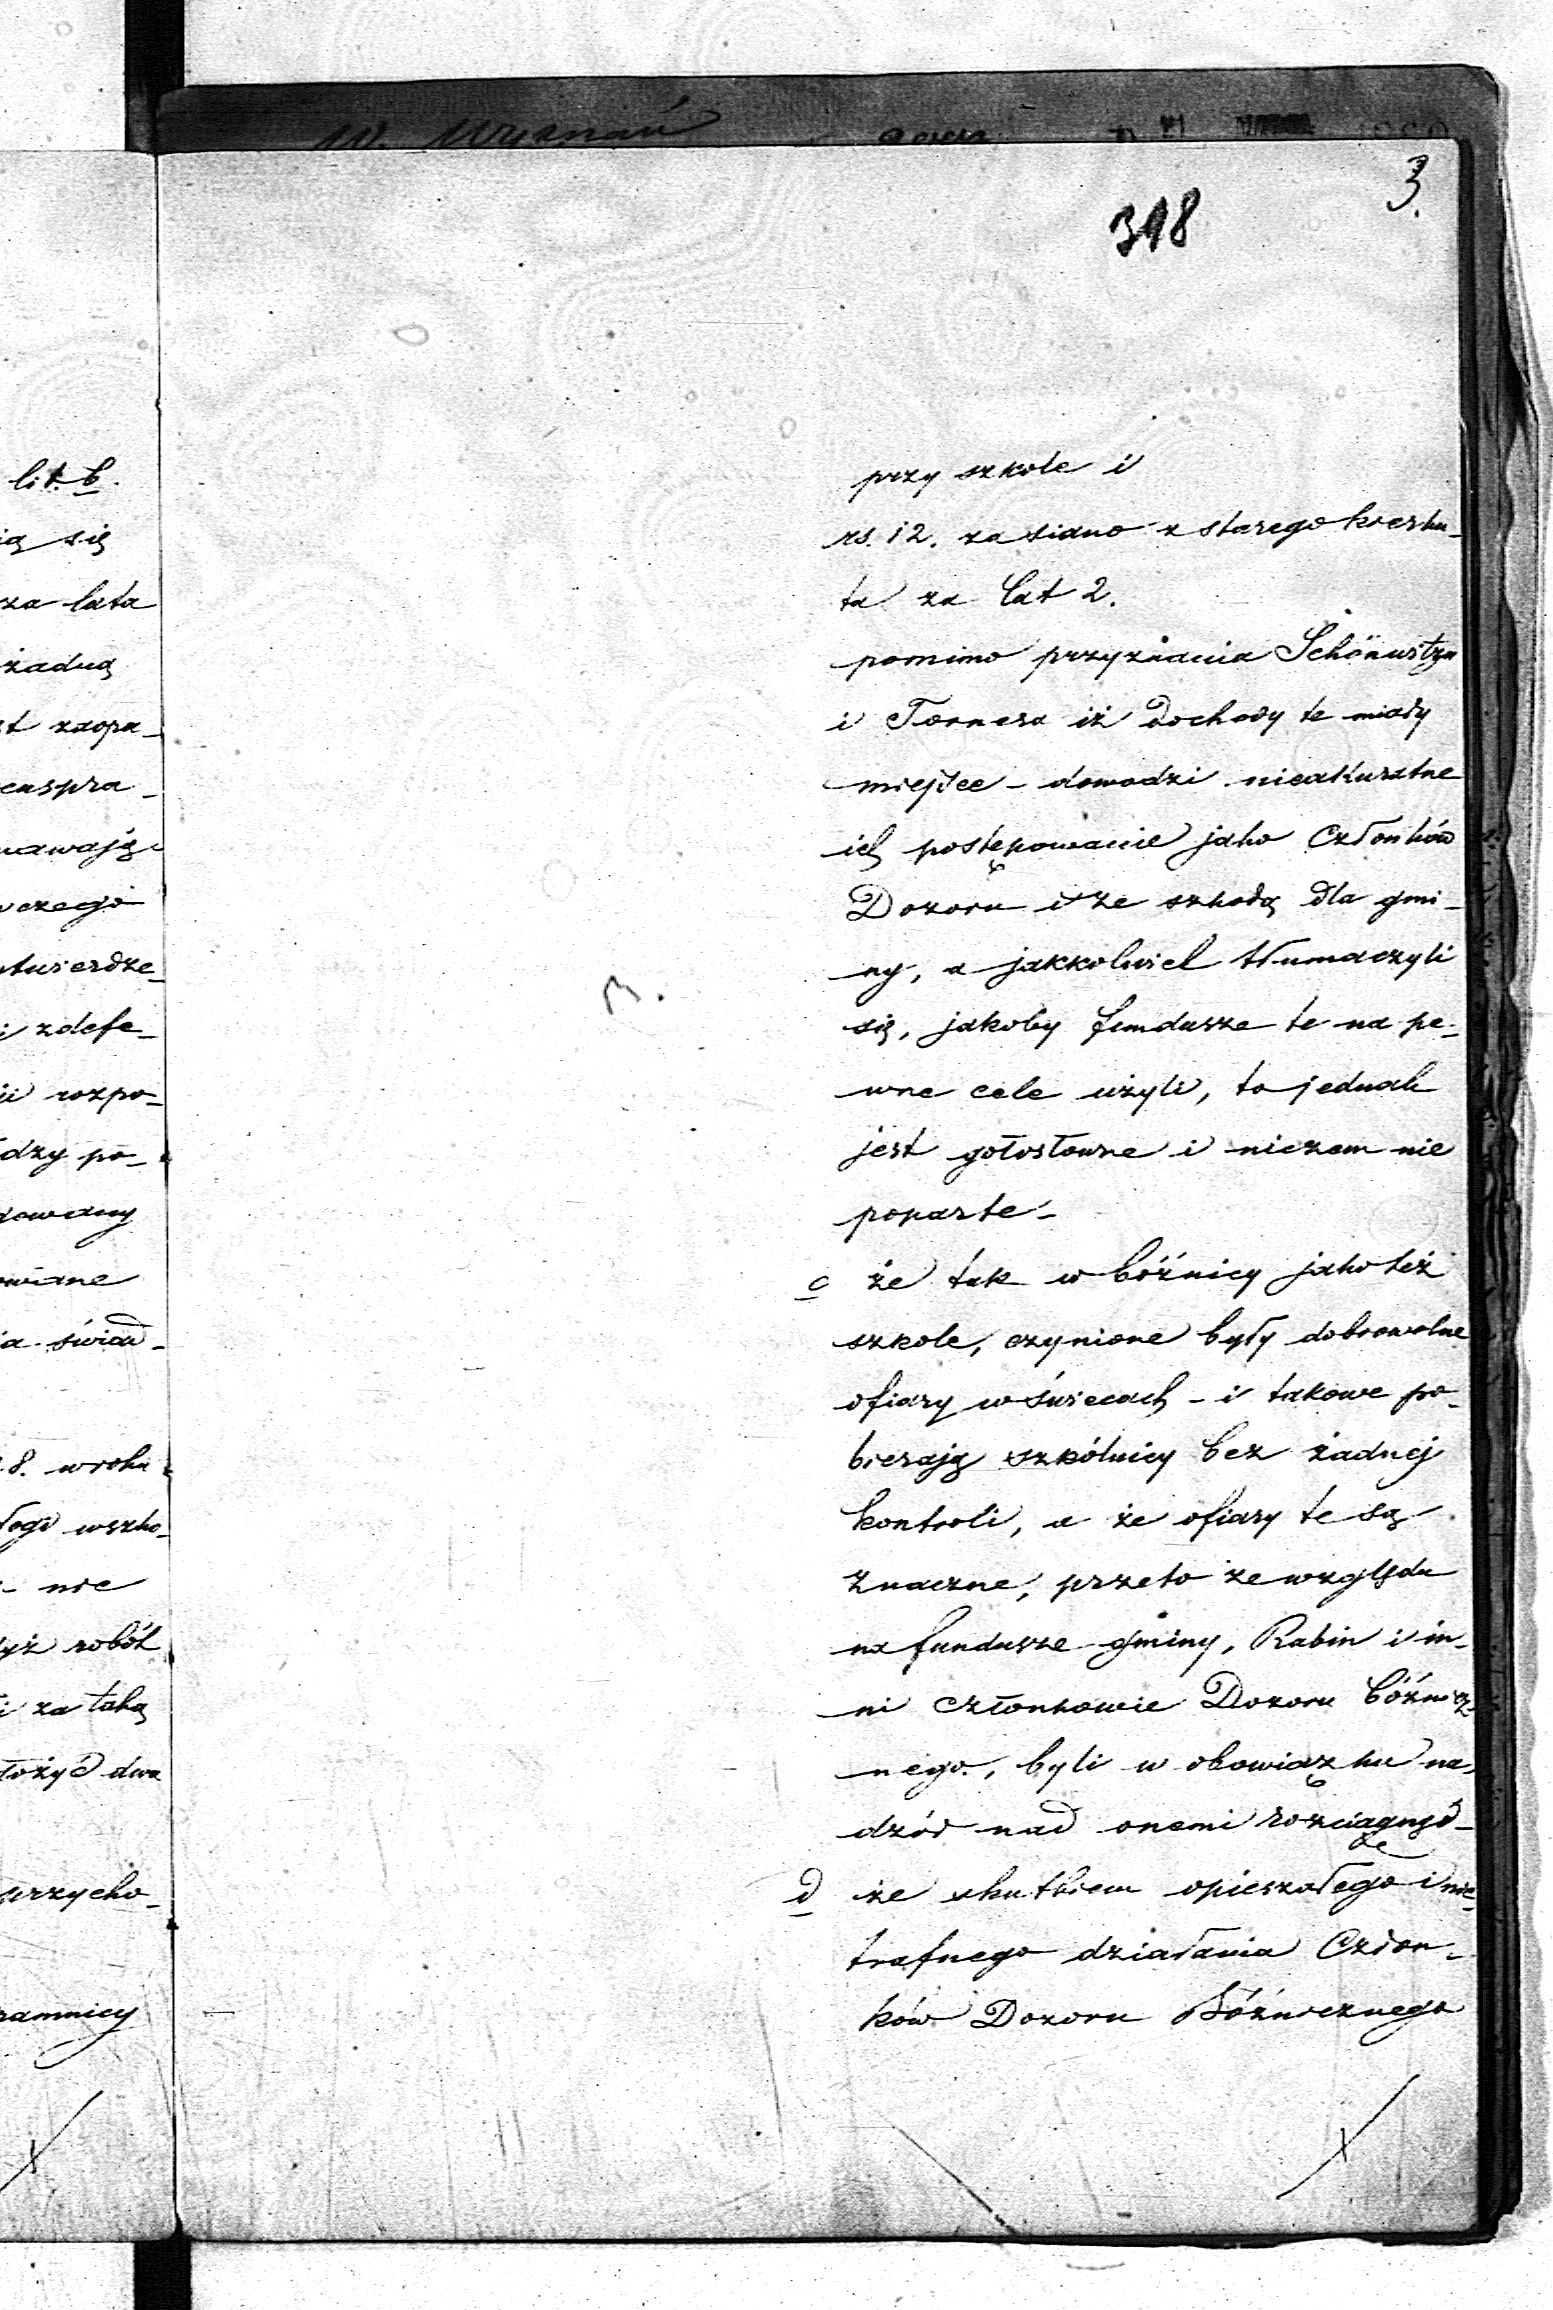 W. Wyznań
3.
318
lit. b.
ią się
za lata
żadną
st zaopa-
enspra-
nawają
czego
twierdze-
i zdefe-
ii rozpo-
dzy po-
dowany
owiane
ia świad-
8. w roku
łogi wszko-
- nie
yż robót
i za taką
łożyć dwa
przycho-
ramnicy
przy szkole i
rs. 12. za siano z starego kierku-
ta za lat 2.
pomimo przyznania
i Tornera iż dochody te miały
miejsce - dowodzi nieakuratne
ich postępowanie jako Członków
Dozoru i ze szkodą dla gmi-
ny, a jakkolwiek tłumaczyli
się, jakoby fundusze te na pe-
wne cele użyli, to jednak
jest gołosłowne i niczem nie
poparte -
c że tak w bóźnicy jako też
szkole, czynione były dobrowolne
ofiary w świecach - i takowe po-
bierają szkólnicy bez żadnej
kontroli, a że ofiary te są
znaczne, przeto ze względu
na fundusze gminy, Rabin i in-
ni członkowie Dozoru bóźnicz-
nego, byli w obowiązku na-
dzór nad onemi rozciągnąć -
d że skutkiem opieszałego i nie-
trafnego działania Człon-
ków Dozoru Bóźnicznego